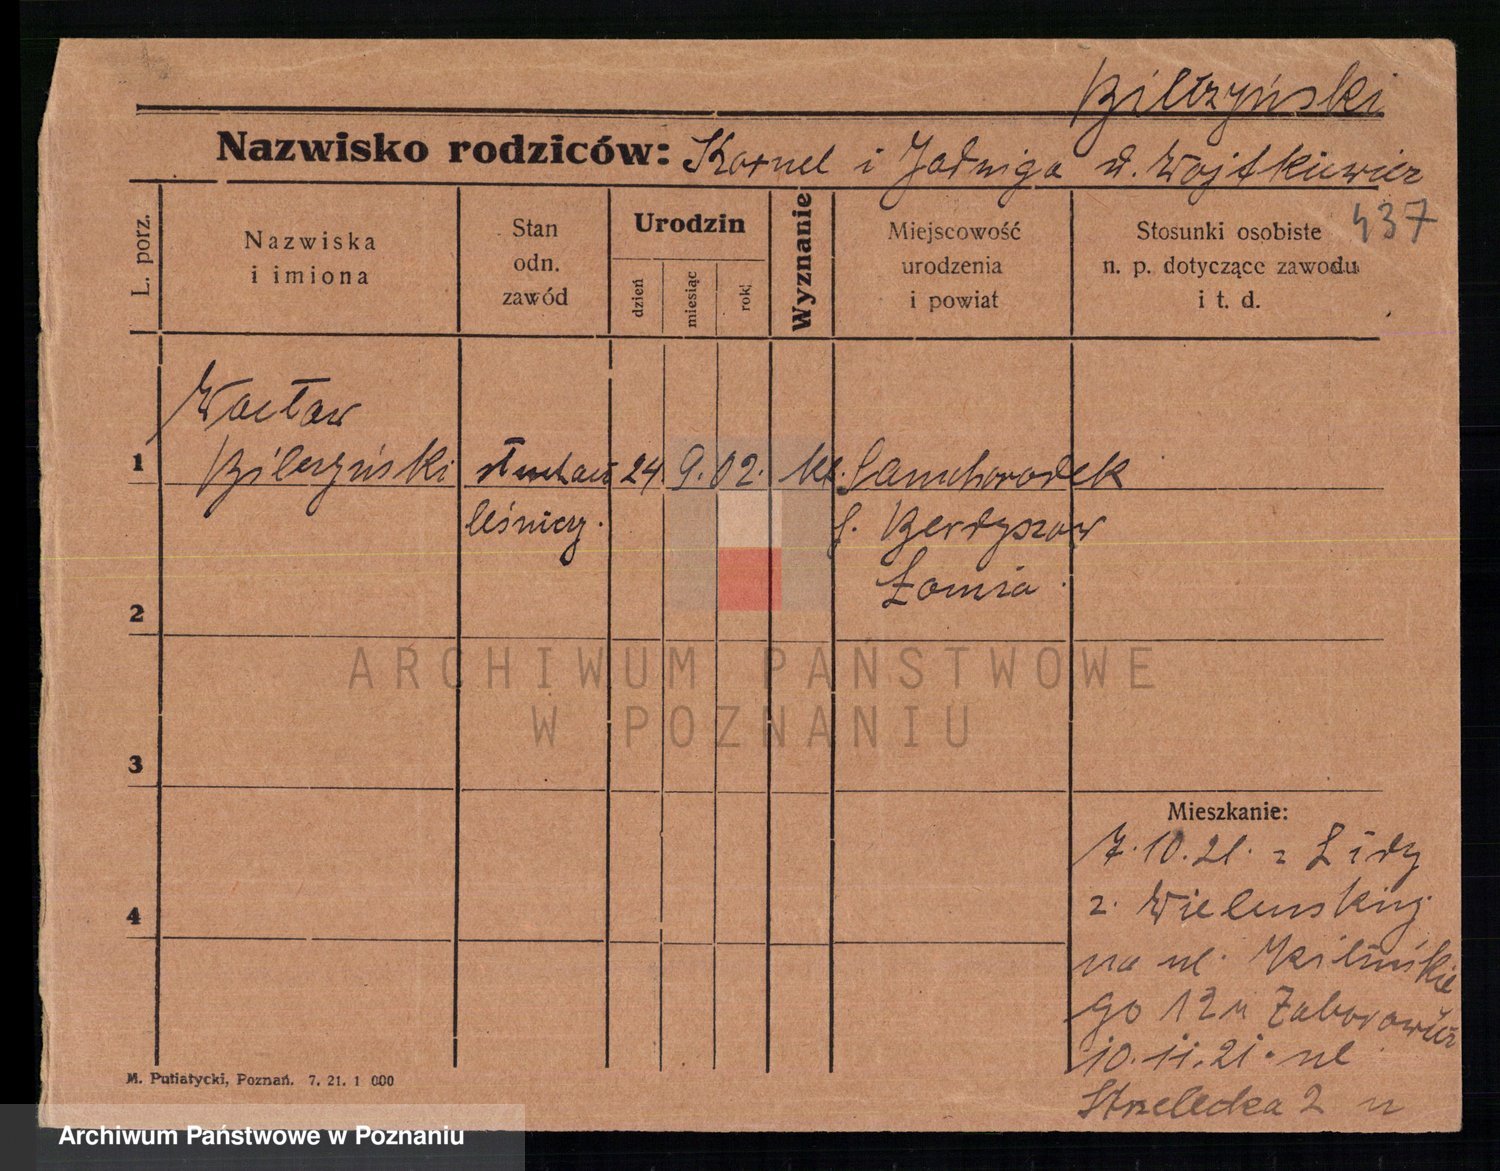 Bilczyński
Nazwisko rodziców: Kornel i Jadwiga d. Wojtkiewicz
437
L. porz.
Nazwiska
i imiona
Stan
odn.
zawód
Urodzin
dzień
miesiąc
rok
Wyznanie
Miejscowość
urodzenia
i powiat
Stosunki osobiste
n. p. dotyczące zawodu
i t. d.
Wacław
1 Bilczyński słuchacz 24 9. 02. kt. Samhorodek
leśniczy. p. Berdyszow
2 Łomża
ARCHIWUM PAŃSTWOWE
W POZNANIU
3
4
Mieszkanie:
7.10.21. z Lidy
z. Wielenskiej
na ul. Kilińskie
go 12 u Zaborowicz
10.11.21. ul
Strzelecka 2 u
M. Putiatycki, Poznań. 7. 21. 1 000
Archiwum Państwowe w Poznaniu